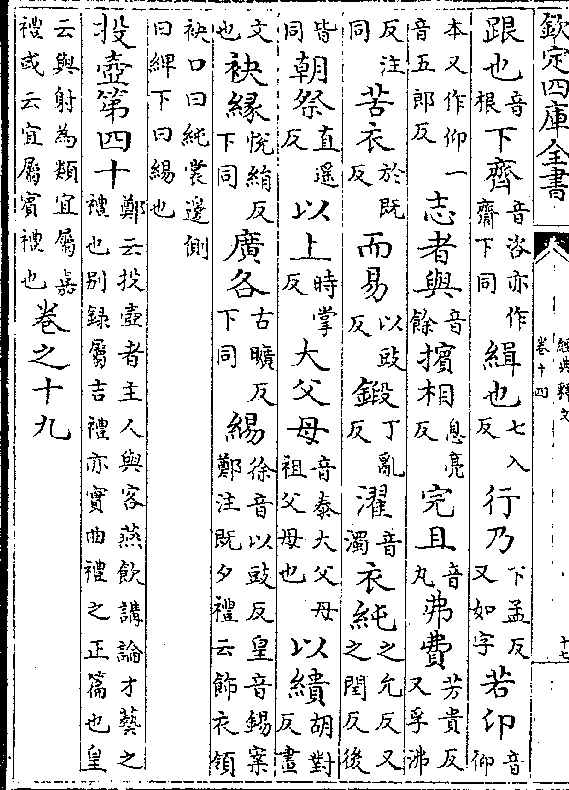 欽定四庫全書
經典釋文
卷十四
十七
跟也音根下齊音咨亦作齋下同緝也七入反行乃下孟反又如字若卬音仰
本又作仰一音五郎反志者與音餘擯相息亮反完且音丸弗費芳貴反又孚沸
反注同苦衣於既反而易以豉反鍛丁亂反濯音濁衣純之允反又之閏反後
皆同朝祭直遥反以上時掌反大父母音泰大父母祖父母也以繢胡對反畫
文也袂緣悅絹反下同廣各古曠反下同緆徐音以豉反皇音錫案鄭注既夕禮云飾衣領
袂口曰純裳邊側曰綼下曰緆也
投壺第四十鄭云投壺者主人與客燕飲講論才藝之禮也别錄屬吉禮亦實曲禮之正篇也皇
云與射為類宜屬嘉禮或云宜屬賓禮也卷之十九